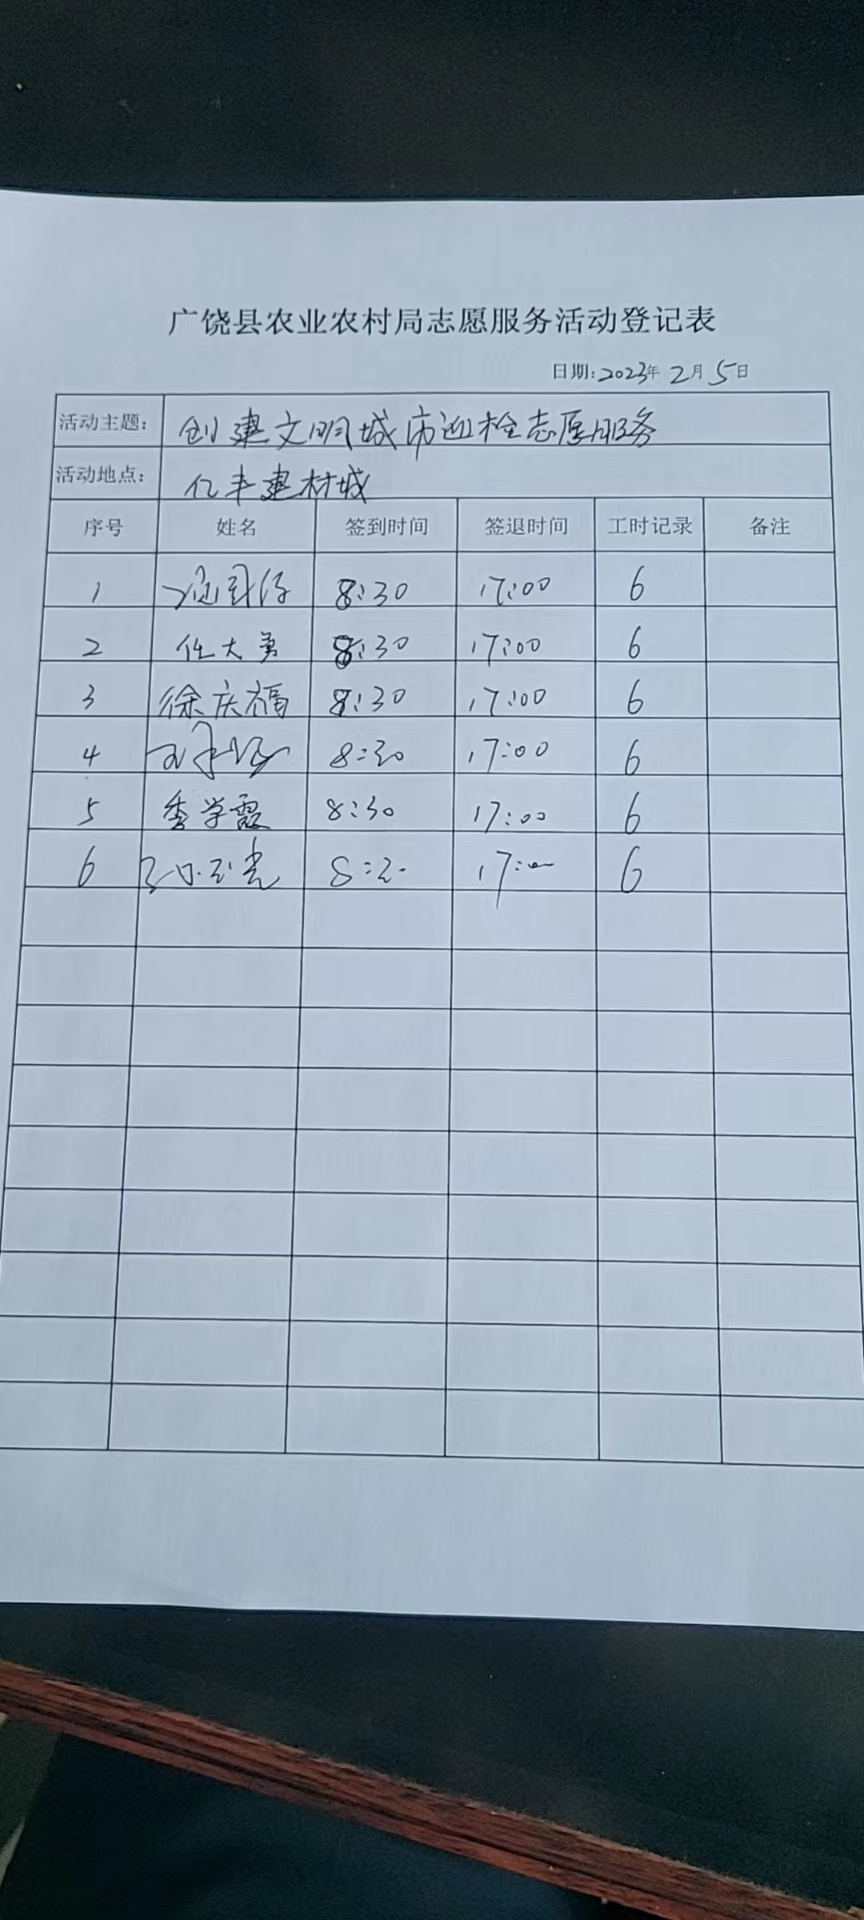 广饶县农业农村局志愿服务活动登记表
日期:2023年 2月 5日
活动主题: 创建文明城市迎检志愿服务
活动地点: 亿丰建材城
序号 姓名 签到时间 签退时间 工时记录 备注
1 8:30 17:00 6
2 任大勇 8:30 17:00 6
3 徐庆福 8:30 17:00 6
4 8:30 17:00 6
5 季学霞 8:30 17:00 6
6 17:00 6